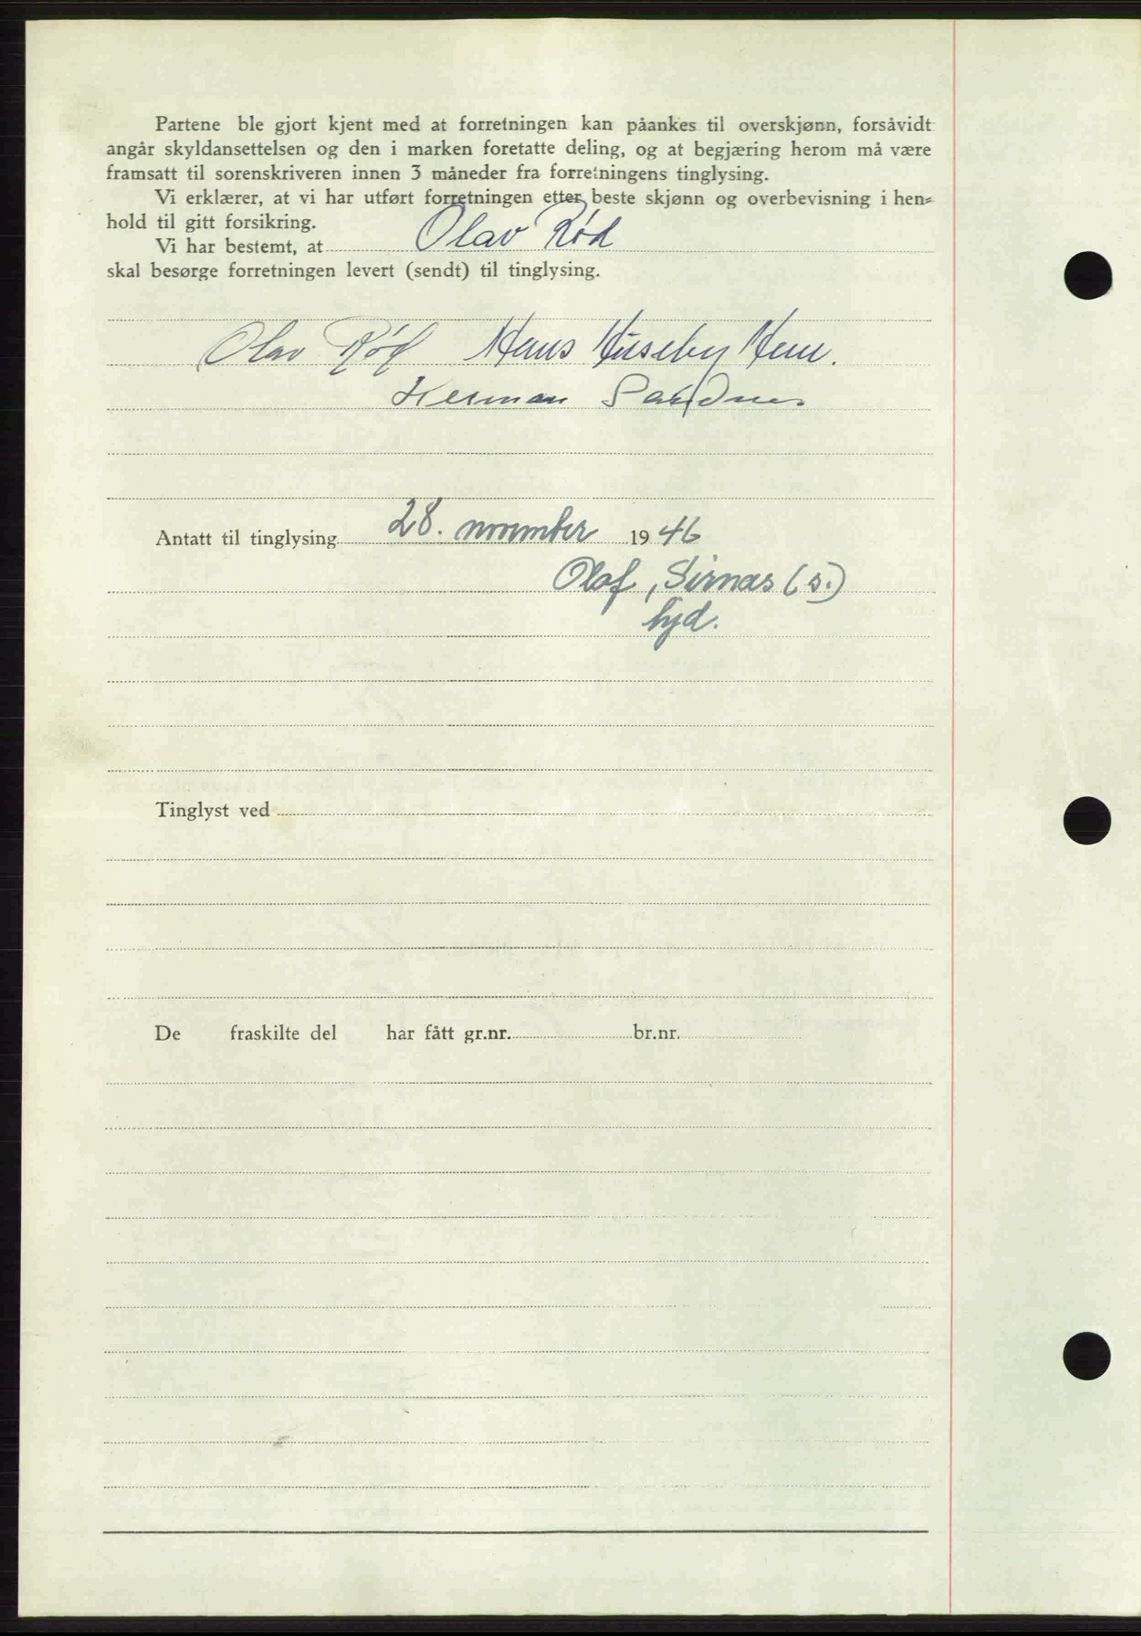 Partene ble gjort kjent med at forretningen kan påankes til overskjønn, forsåvidt
angår skyldansettelsen og den i marken foretatte deling, og at begjæring herom må være
framsatt til sorenskriveren innen 3 måneder fra forretningens tinglysing.
Vi erklærer, at vi har utført forretningen etter beste skjønn og overbevisning i hen=
hold til gitt forsikring.
Vi har bestemt, at Olav Rød
skal besørge forretningen levert (sendt) til tinglysing.
Olav Rød Hans Huseby Hem.
Herman Sandnes
Antatt til tinglysing 28. november 1946
Olaf Sirnæs (s.)
Tinglyst ved
De fraskilte del har fått gr.nr. br.nr.